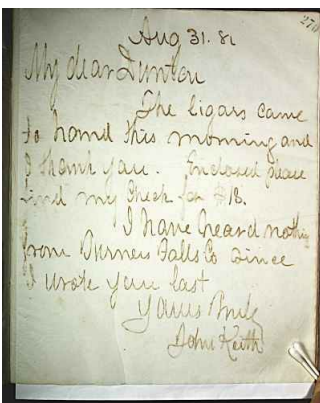 270
Aug 31. 81
My dear Dunton
The Cigars came
to hand this morning and
I thank you. Enclosed please
find my check for $18.
I have heard nothing
from Turners Falls Co since
I wrote you last
Yours Truly
John Keith